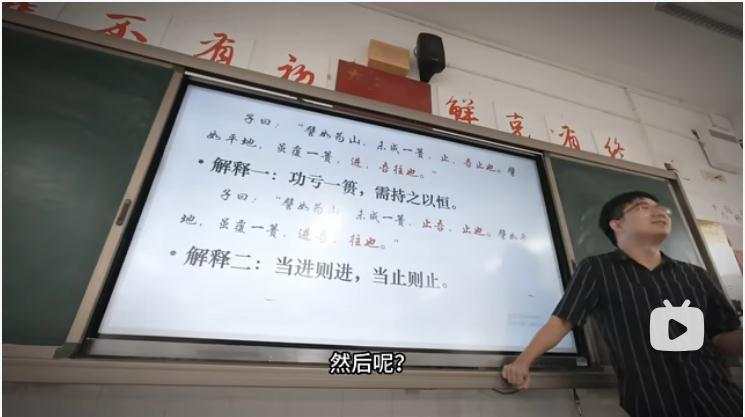 不有初 鲜克有终
子曰：“譬如为山，未成一篑，止，吾止也。譬
如平地，虽覆一篑，进，吾往也。”
• 解释一：功亏一篑，需持之以恒。
子曰：“譬如为山，未成一篑，止吾，止也。譬如平
地，虽覆一篑，进吾，往也。”
• 解释二：当进则进，当止则止。
然后呢？